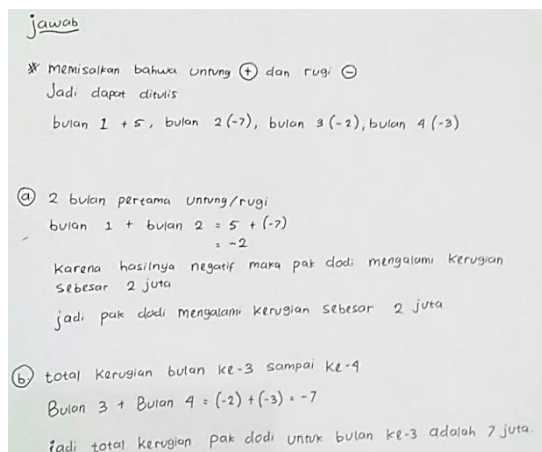 jawab
* memisalkan bahwa untung (+) dan rugi (-)
Jadi dapat ditulis
bulan 1 + 5, bulan 2 (-7), bulan 3 (-2), bulan 4 (-3)
(a) 2 bulan pertama untung/rugi
bulan 1 + bulan 2 = 5 + (-7)
= -2
Karena hasilnya negatif maka pak dodi mengalami kerugian
sebesar 2 juta
jadi pak dodi mengalami kerugian sebesar 2 juta
(b) total kerugian bulan ke-3 sampai ke-4
Bulan 3 + Bulan 4 = (-2) + (-3) = -7
jadi total kerugian pak dodi untuk bulan ke-3 adalah 7 juta.